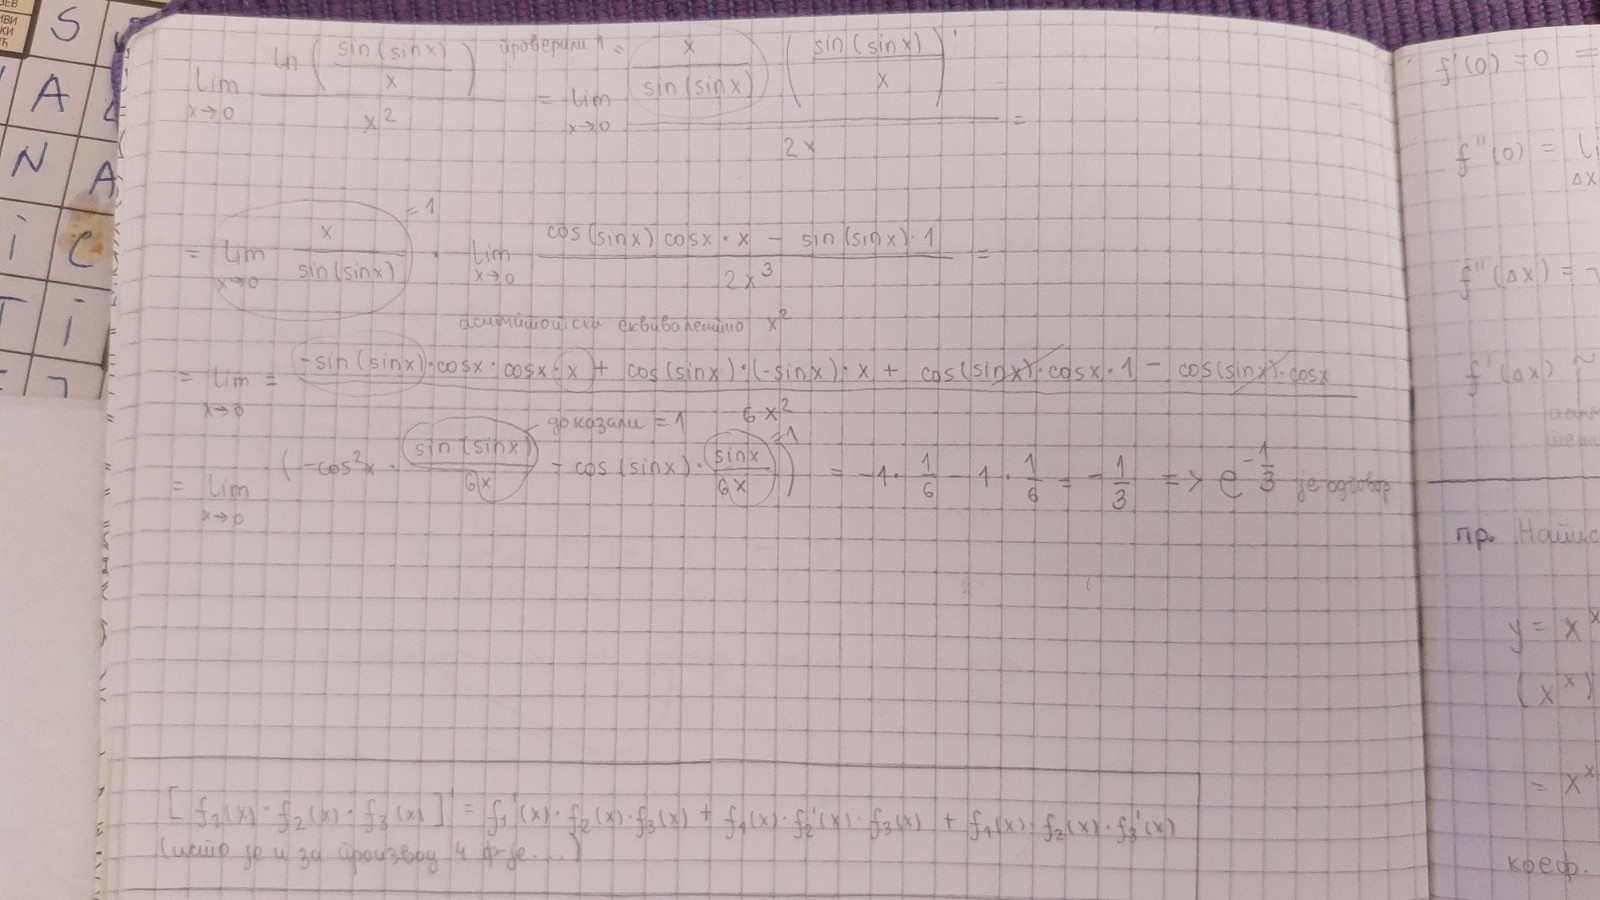 lim x→0 ln(sin(sin x)/x) / x² = lim x→0 (x/sin(sin x)) (sin(sin x)/x)' / 2x =
= lim x→0 x/sin(sin x) = 1 · lim x→0 (cos(sin x) cos x · x − sin(sin x) · 1) / 2x³ =
x²
= lim x→0 = (−sin(sin x) · cos x · cos x · x + cos(sin x) · (−sin x) · x + cos(sin x) · cos x · 1 − cos(sin x) · cos x) / 6x²
доказали = 1
= lim x→0 (−cos²x · sin(sin x)/6x − cos(sin x) · sin x/6x) = −1 · 1/6 − 1 · 1/6 = −1/3 => e^(−1/3) је одговор
[f₁(x) · f₂(x) · f₃(x)]' = f₁'(x) · f₂(x) · f₃(x) + f₁(x) · f₂'(x) · f₃(x) + f₁(x) · f₂(x) · f₃'(x)
(исто је и за производ 4 ф-је...)
f'(0) = 0 =
f''(0) =
Δx
f''(Δx) =
f'(Δx) ~
пр.
y = x^x
(x^x)
= x^x
коеф.
S
A
N A
i C
T i